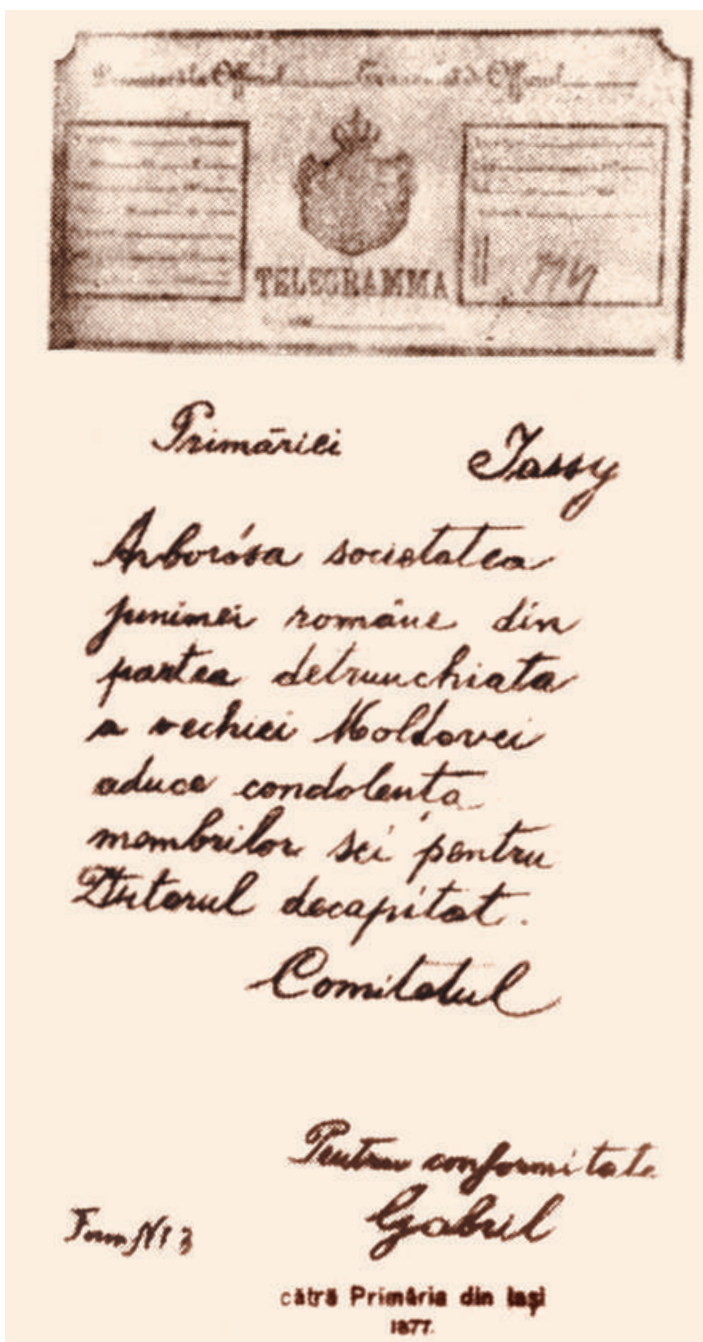 TELEGRAMMA
Primăriei Jassy
Arborósa societatea
junimei române din
partea detrunchiata
a vechiei Moldovei
aduce condolenţa
membrilor sei pentru
decapitat.
Comitetul
Pentru conformitate
Gabril
Form № 3
cătră Primăria din Iaşi
1877.